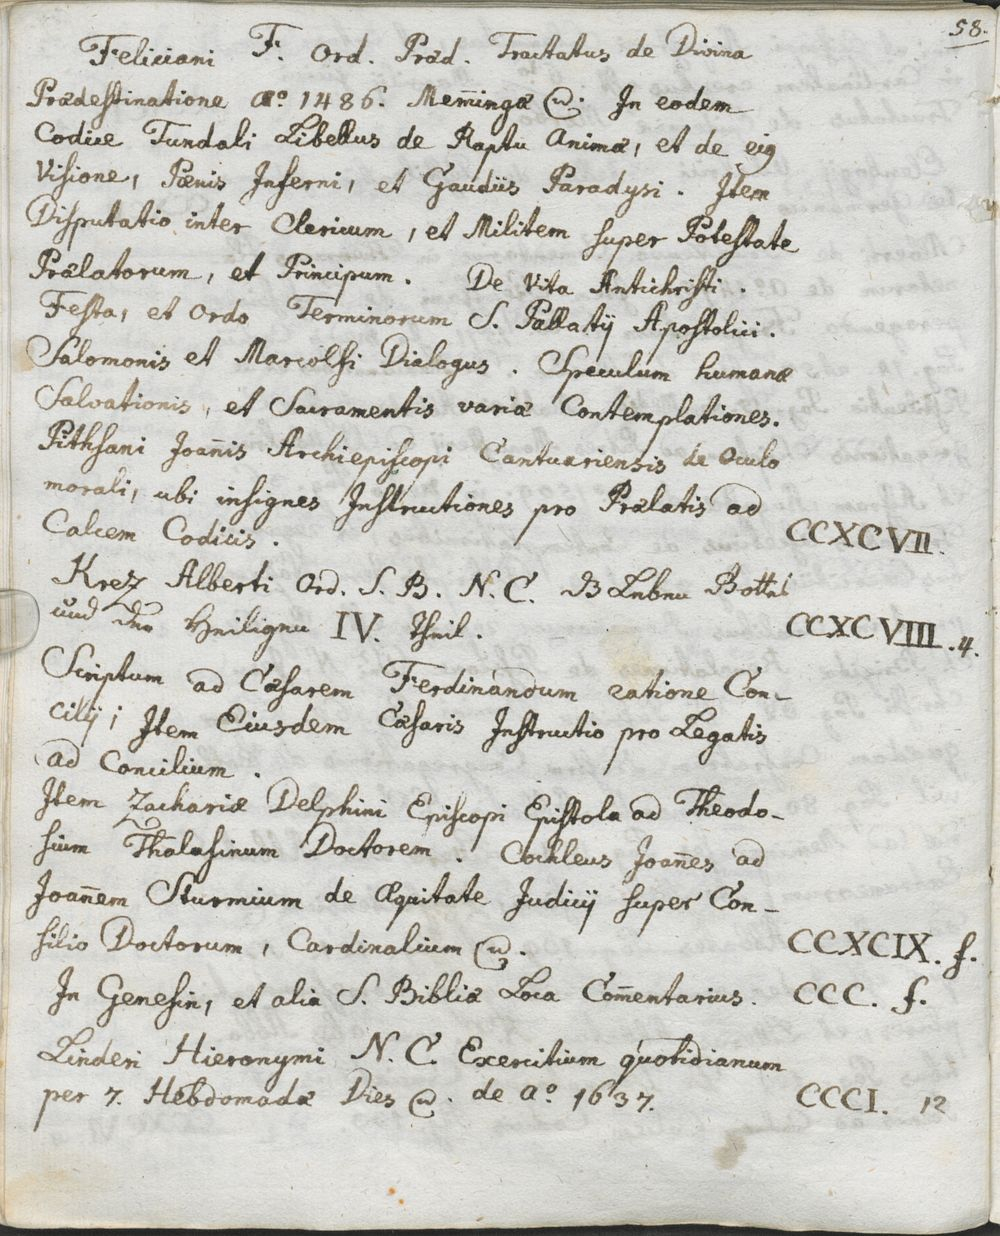 58.
Feliciani F. Ord. Præd. Tractatus de Divina
Prædestinatione aº 1486. Mem̄ingæ &c. In eodem
Codice Tundali Libellus de Raptu Animæ, et de eiꝰ
Visione, Pœnis Inferni, et Gaudiis Paradysi. Item
Disputatio inter Clericum, et Militem super Potestate
Prælatorum, et Principum. De Vita Antichristi.
Festa, et Ordo Terminorum S. Pallatij Apostolici.
Salomonis et Marcolfi Dialogus. Speculum humanæ
Salvationis, et Sacramentis variæ Contemplationes.
Pithsani Joan̄is Archiepiscopi Cantuariensis de Oculo
morali, ubi insignes Instructiones pro Prælatis ad
Calcem Codicis. CCXCVII.
Krez Alberti Ord. S. B. N. C. Leben Gottes
und der Heiligen IV. Theil. CCXCVIII. 4.
Scriptum ad Cæsarem Ferdinandum ratione Con-
cilij; Item Eiusdem Cæsaris Instructio pro Legatis
ad Concilium.
Item Zachariæ Delphini Episcopi Epistola ad Theodo-
sium Thalasinum Doctorem. Cochleus Joan̄es ad
Joan̄em Sturmium de Æquitate Judicij super Con-
silio Doctorum, Cardinalium &c. CCXCIX. f.
In Genesin, et alia S. Bibliæ Loca Com̄entarius. CCC. f.
Linderi Hieronymi N. C. Exercitium quotidianum
per 7. Hebdomadæ Dies &c. de aº 1637. CCCI. 12